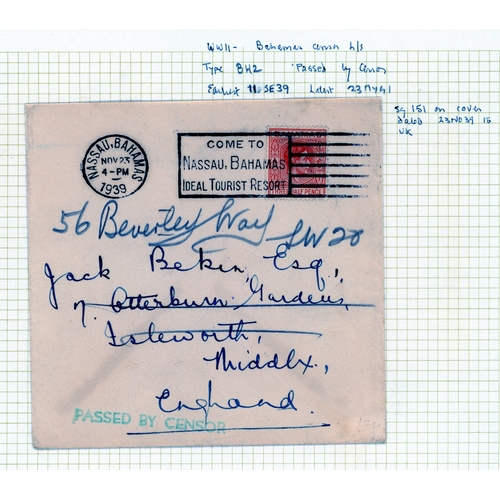 WWII - Bahamas censor h/s
Type BH2 'Passed by Censor
Earliest 11 SE39 Latest 23 MY41
SG 151 on cover
dated 23NO39 to
UK
NASSAU, BAHAMAS
NOV 23
4-PM
1939
COME TO
NASSAU, BAHAMAS
IDEAL TOURIST RESORT
HALF PENCE
56 Beverley Way SW20
Jack Bekin, Esq,
7. Otterburn Gardens,
Isleworth,
Middlx.,
England.
PASSED BY CENSOR